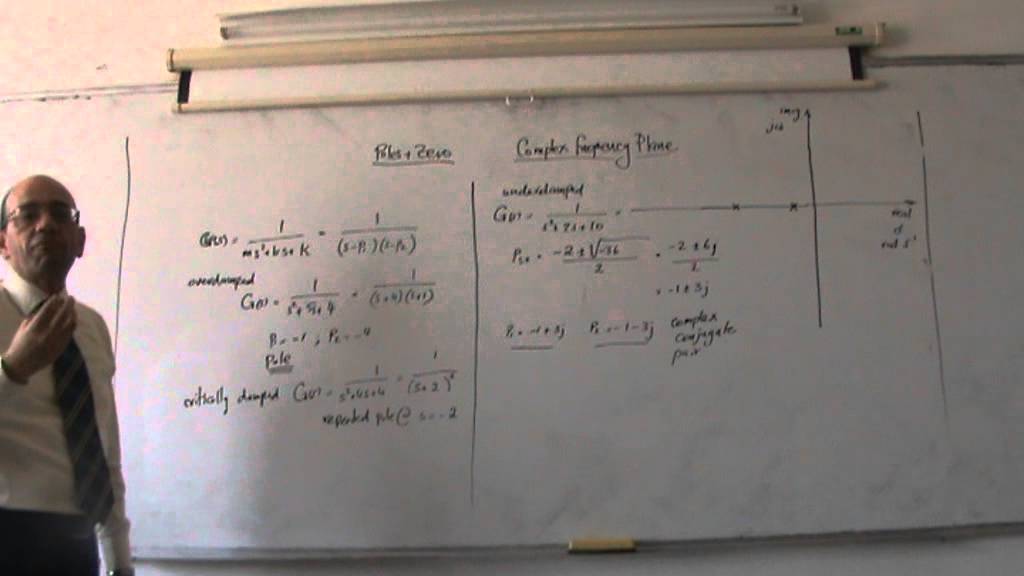 Poles + Zero
G(s) = 1 / (ms² + bs + k) = 1 / ((s - p₁)(s - p₂))
overdamped
G(s) = 1 / (s² + 5s + 4) = 1 / ((s+4)(s+1))
P₁ = -1 , P₂ = -4
Pole
critically damped G(s) = 1 / (s² + 4s + 4) = 1 / (s+2)²
repeated pole @ s = -2
Complex Frequency Plane
underdamped
G(s) = 1 / (s² + 2s + 10) =
= (-2 ± √-36) / 2 = (-2 ± 6j) / 2
= -1 ± 3j
P₁ = -1 + 3j P₂ = -1 - 3j complex
conjugate
pair
imag
jω
real
σ
rad s⁻¹